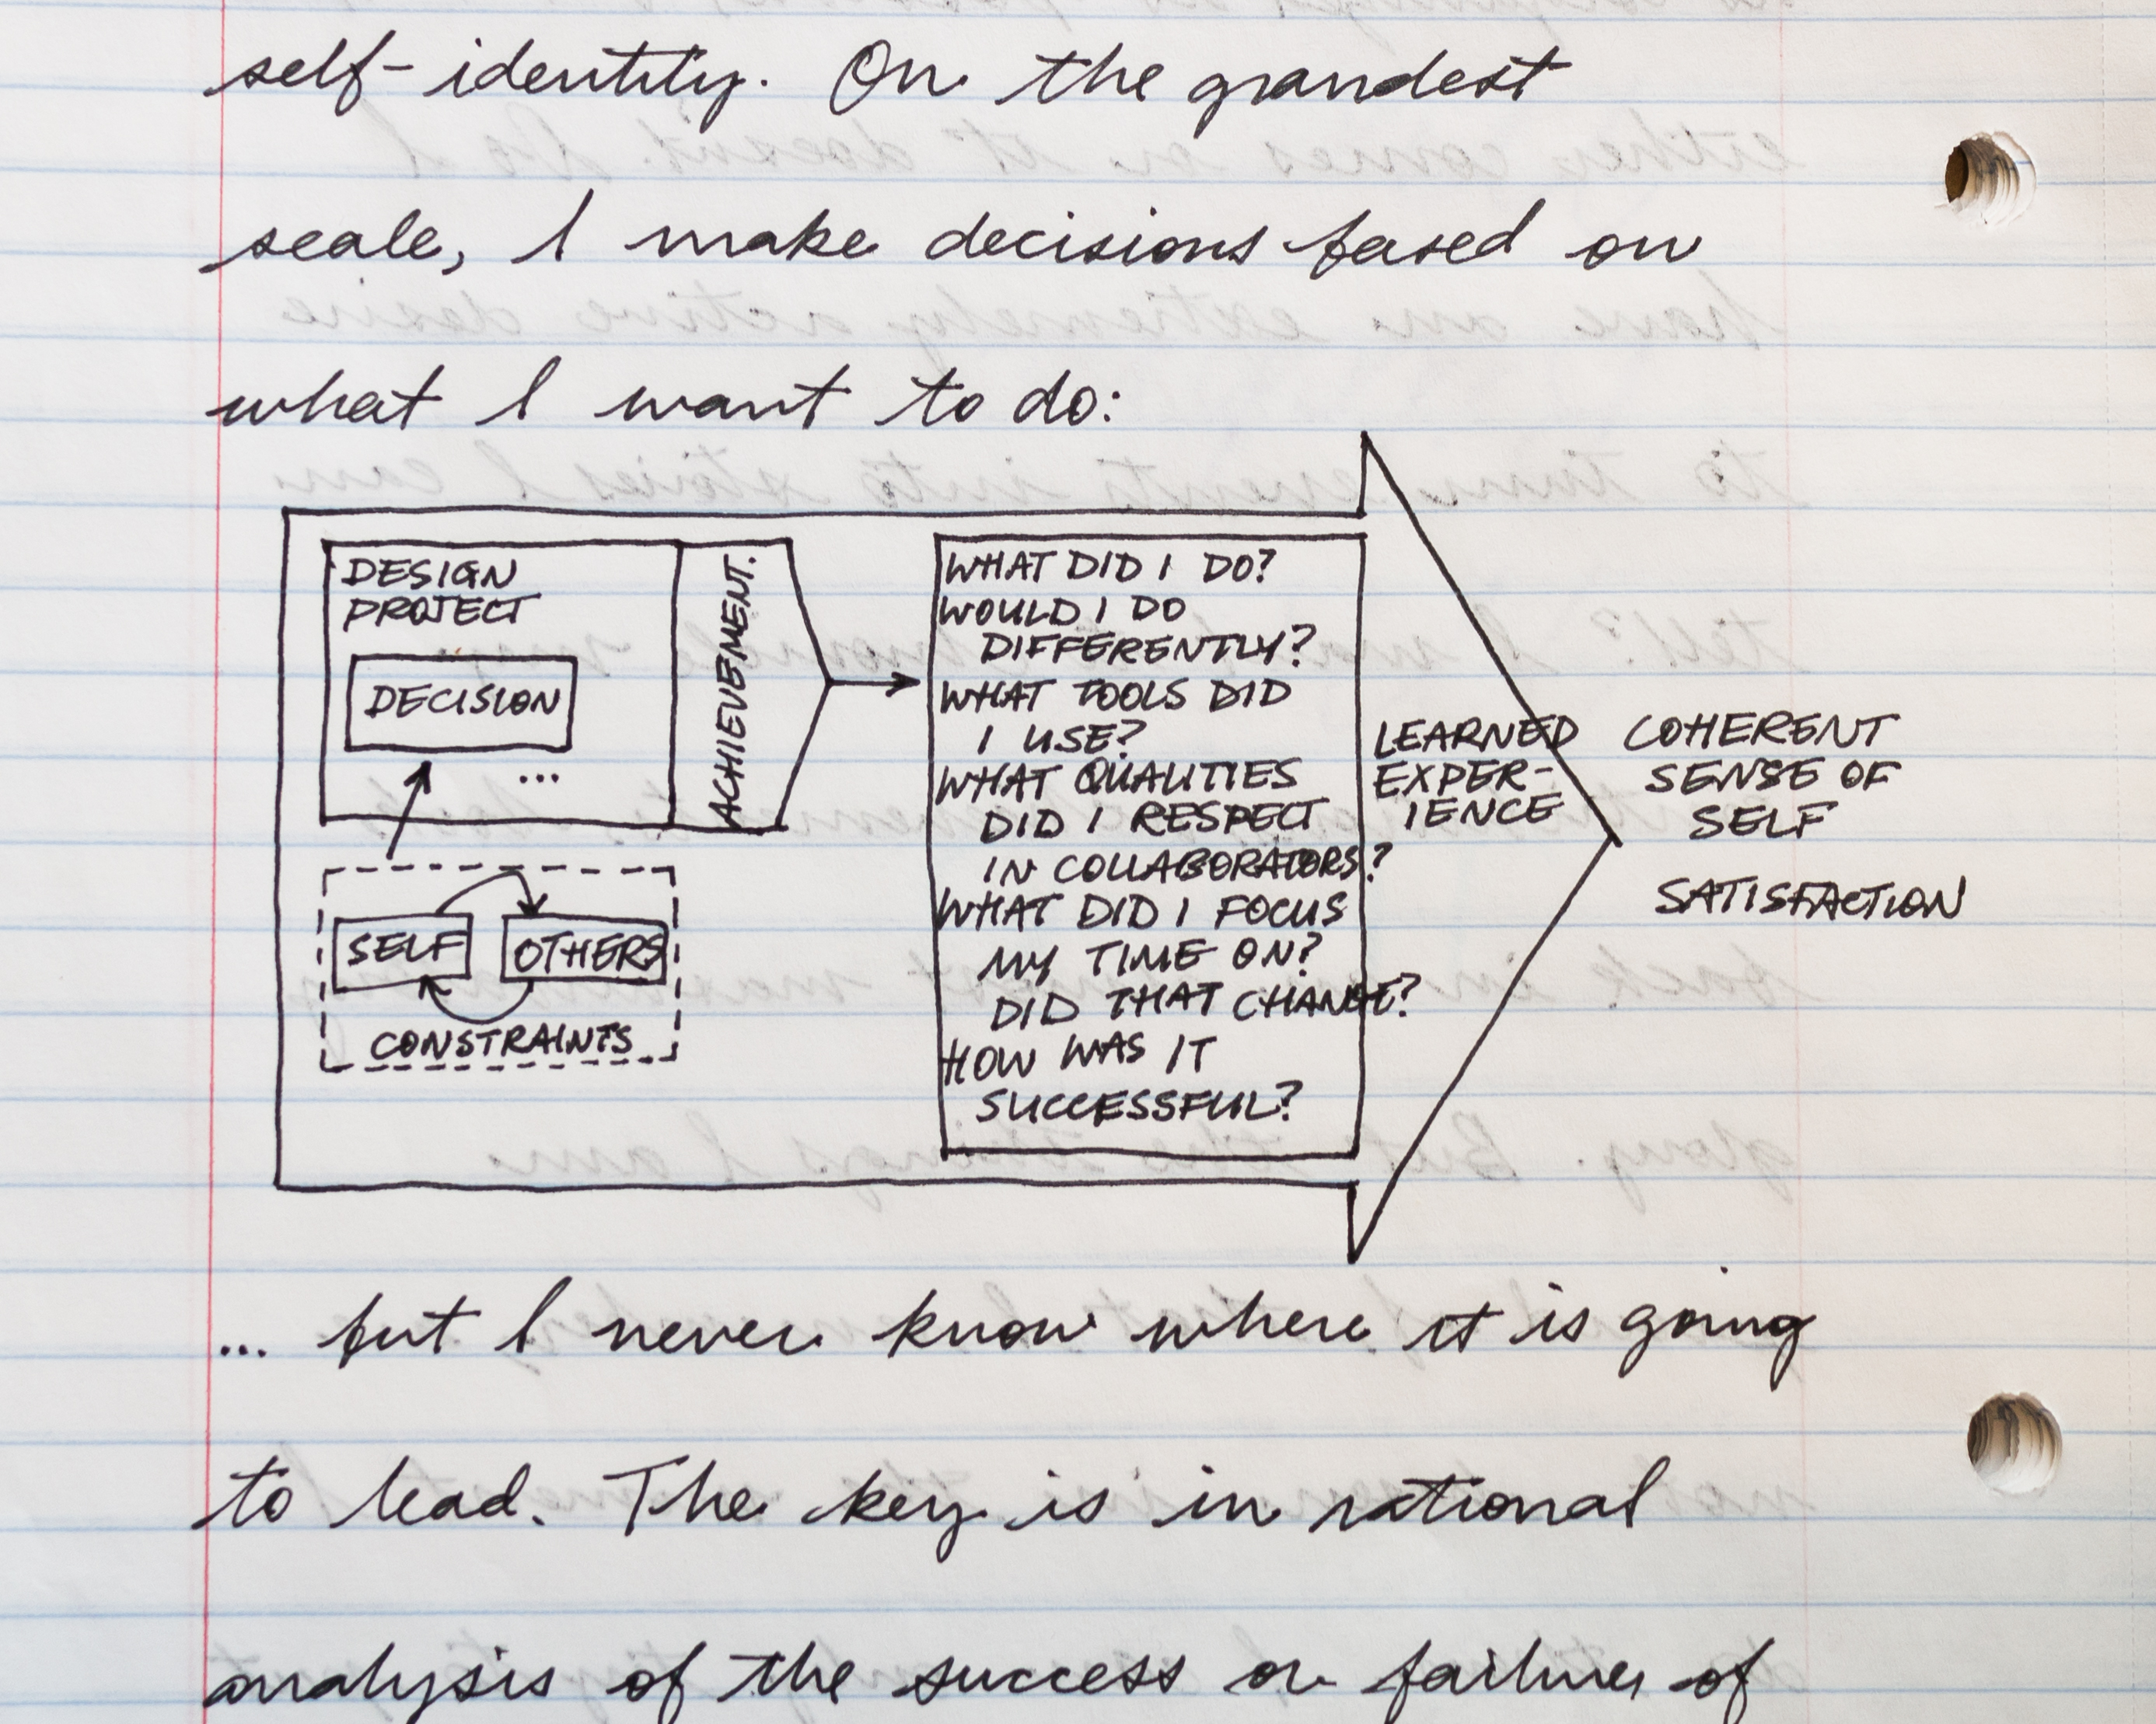 self-identity. On the grandest
scale, I make decisions based on
what I want to do:
DESIGN
PROJECT
DECISION
...
ACHIEVEMENT.
SELF
OTHERS
CONSTRAINTS
WHAT DID I DO?
WOULD I DO
DIFFERENTLY?
WHAT TOOLS DID
I USE?
WHAT QUALITIES
DID I RESPECT
IN COLLABORATORS?
WHAT DID I FOCUS
MY TIME ON?
DID THAT CHANGE?
HOW WAS IT
SUCCESSFUL?
LEARNED
EXPER-
IENCE
COHERENT
SENSE OF
SELF
SATISFACTION
... but I never know where it is going
to lead. The key is in rational
analysis of the success or failure of